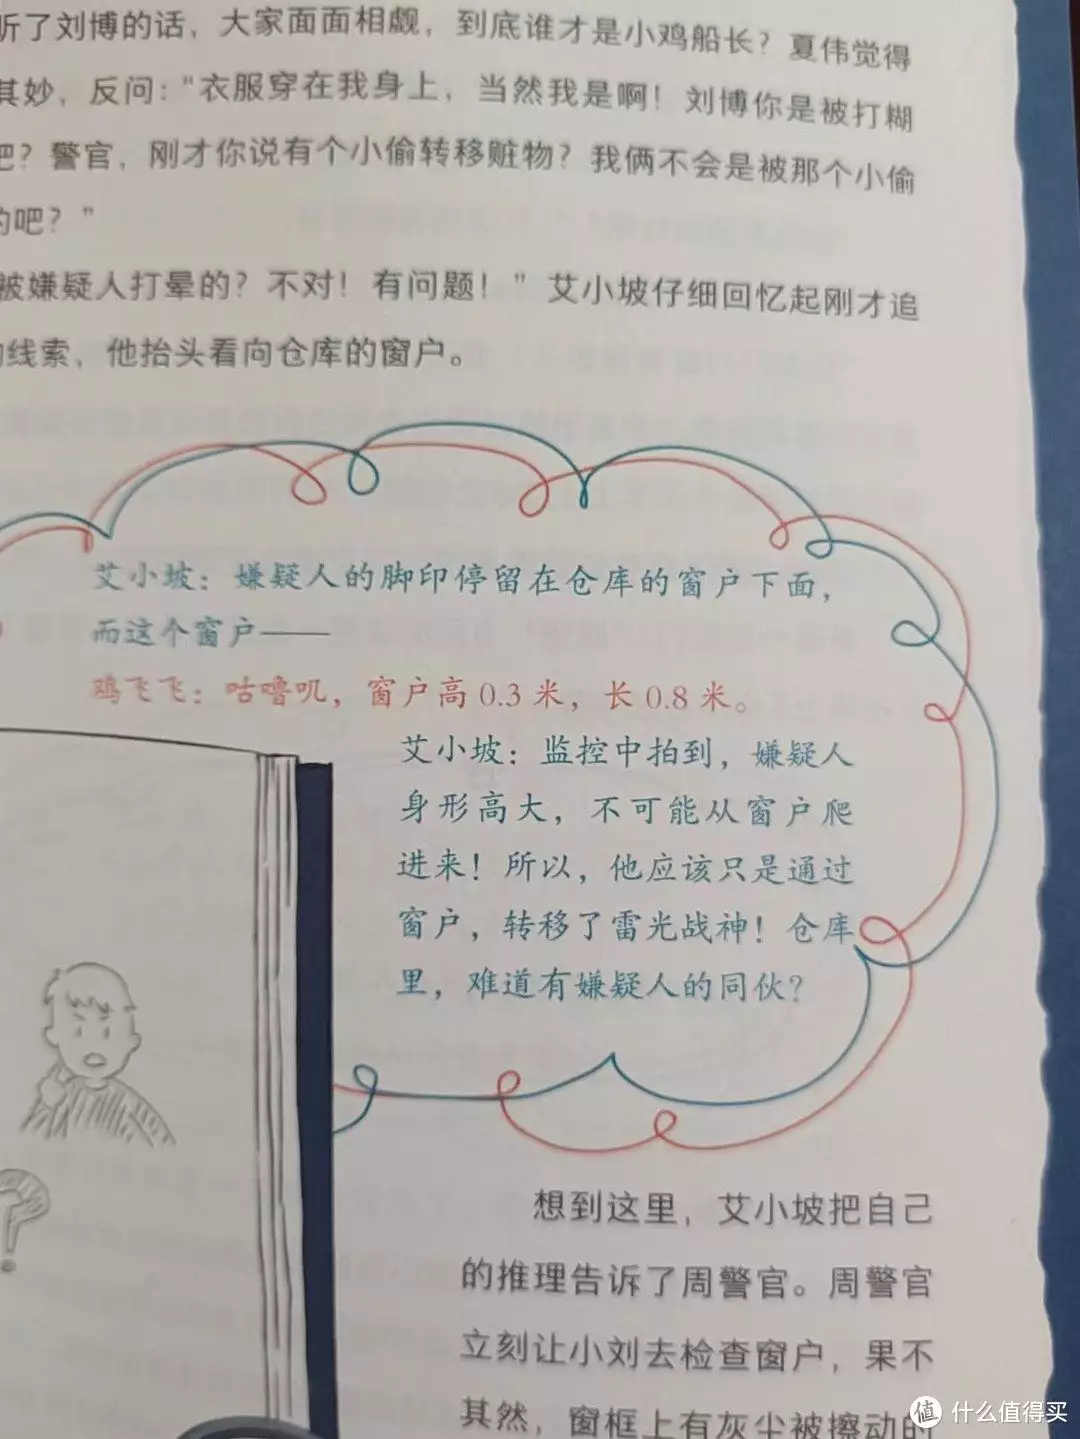 听了刘博的话，大家面面相觑，到底谁才是小鸡船长？夏伟觉得
其妙，反问：“衣服穿在我身上，当然我是啊！刘博你是被打糊
吧？警官，刚才你说有个小偷转移赃物？我俩不会是被那个小偷
的吧？”
被嫌疑人打晕的？不对！有问题！”艾小坡仔细回忆起刚才追
的线索，他抬头看向仓库的窗户。
艾小坡：嫌疑人的脚印停留在仓库的窗户下面，
而这个窗户——
鸡飞飞：咕噜叽，窗户高0.3米，长0.8米。
艾小坡：监控中拍到，嫌疑人
身形高大，不可能从窗户爬
进来！所以，他应该只是通过
窗户，转移了雷光战神！仓库
里，难道有嫌疑人的同伙？
?
想到这里，艾小坡把自己
的推理告诉了周警官。周警官
立刻让小刘去检查窗户，果不
其然，窗框上有灰尘被擦动的
值 什么值得买